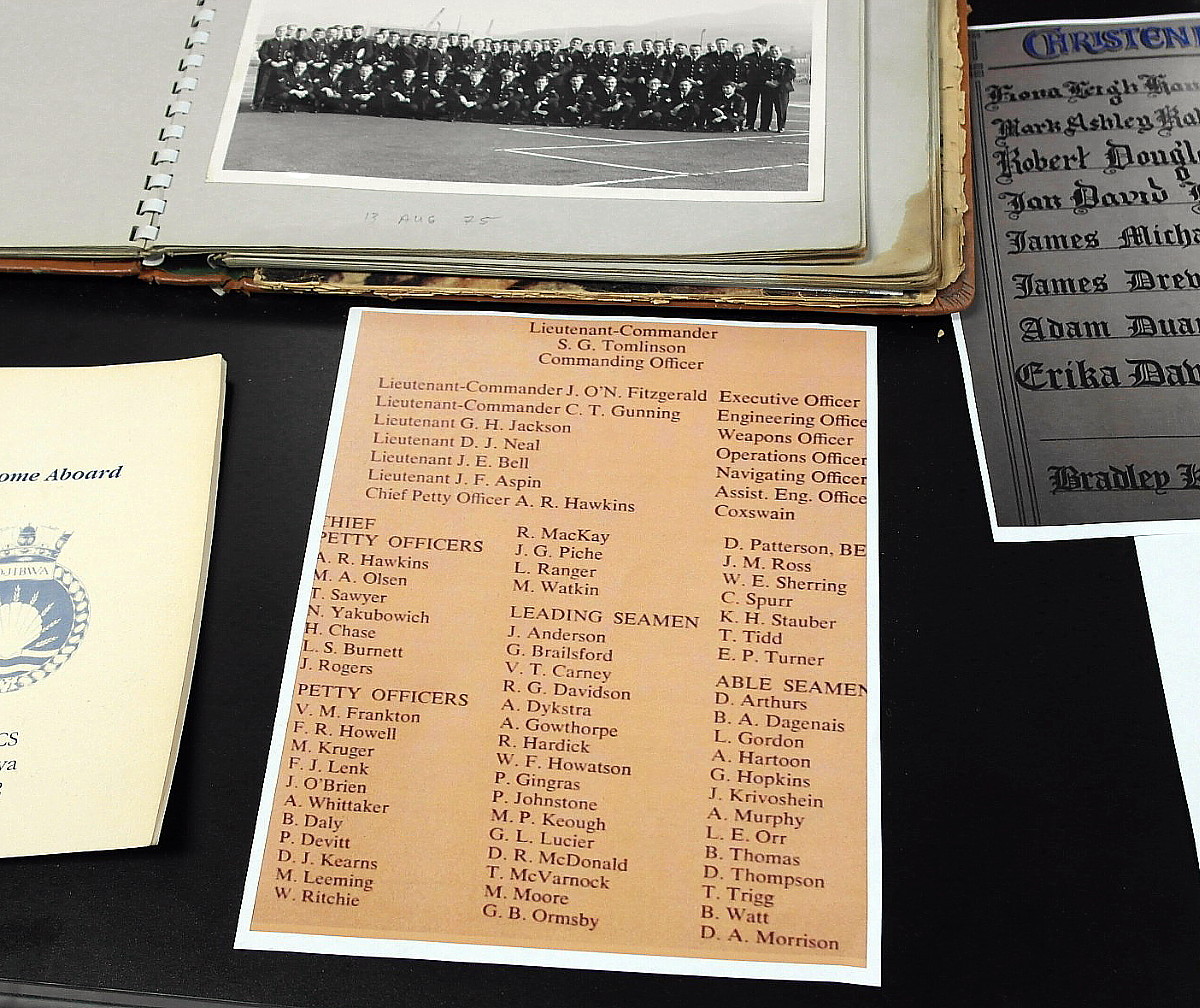 13 AUG 75
CHRISTEN
Fiona Leigh
Mark Ashley
Robert Dougl
Ian David
James Micha
James Drew
Adam Dua
Erika Dav
Bradley
ome Aboard
OJIBWA
CS
wa
Lieutenant-Commander
S. G. Tomlinson
Commanding Officer
Lieutenant-Commander J. O'N. Fitzgerald Executive Officer
Lieutenant-Commander C. T. Gunning Engineering Office
Lieutenant G. H. Jackson Weapons Officer
Lieutenant D. J. Neal Operations Officer
Lieutenant J. E. Bell Navigating Officer
Lieutenant J. F. Aspin Assist. Eng. Office
Chief Petty Officer A. R. Hawkins Coxswain
CHIEF
PETTY OFFICERS
A. R. Hawkins
M. A. Olsen
T. Sawyer
N. Yakubowich
H. Chase
L. S. Burnett
J. Rogers
PETTY OFFICERS
V. M. Frankton
F. R. Howell
M. Kruger
F. J. Lenk
J. O'Brien
A. Whittaker
B. Daly
P. Devitt
D. J. Kearns
M. Leeming
W. Ritchie
R. MacKay
J. G. Piche
L. Ranger
M. Watkin
LEADING SEAMEN
J. Anderson
G. Brailsford
V. T. Carney
R. G. Davidson
A. Dykstra
A. Gowthorpe
R. Hardick
W. F. Howatson
P. Gingras
P. Johnstone
M. P. Keough
G. L. Lucier
D. R. McDonald
T. McVarnock
M. Moore
G. B. Ormsby
D. Patterson, BE
J. M. Ross
W. E. Sherring
C. Spurr
K. H. Stauber
T. Tidd
E. P. Turner
ABLE SEAMEN
D. Arthurs
B. A. Dagenais
L. Gordon
A. Hartoon
G. Hopkins
J. Krivoshein
A. Murphy
L. E. Orr
B. Thomas
D. Thompson
T. Trigg
B. Watt
D. A. Morrison